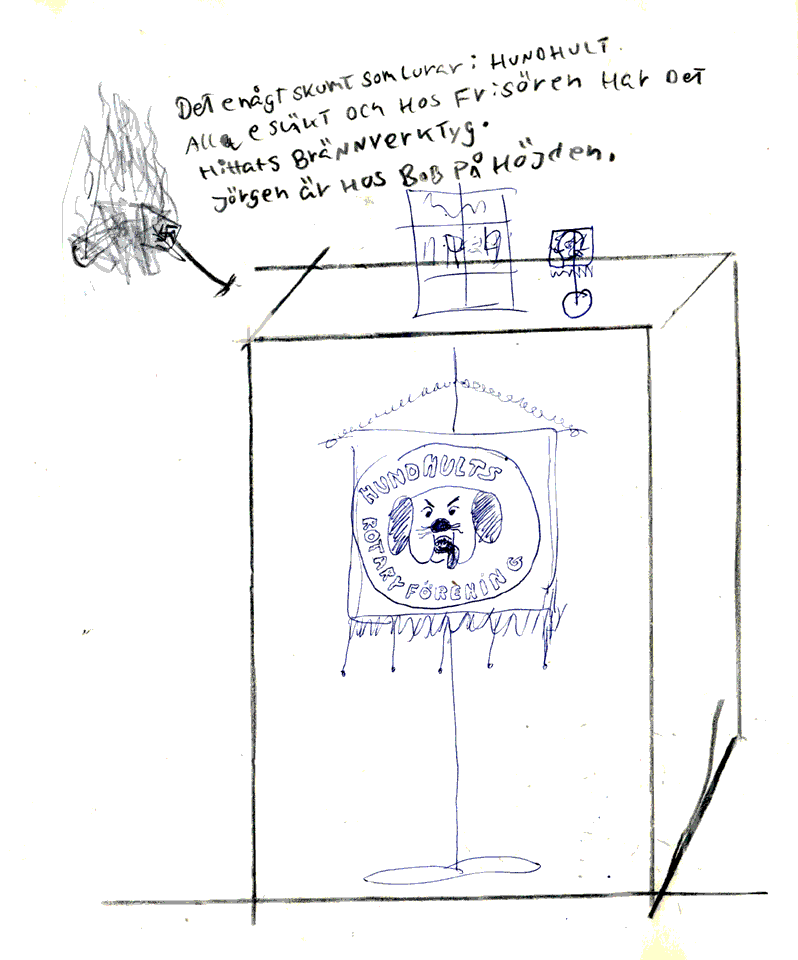 Det e någt skumt som lurar i HUNDHULT.
Alla e släkt och Hos Frisören Har Det
Hittats Brännverktyg.
Jörgen är Hos Bob på Höjden.
HUNDHULTS
ROTARY FÖRENING